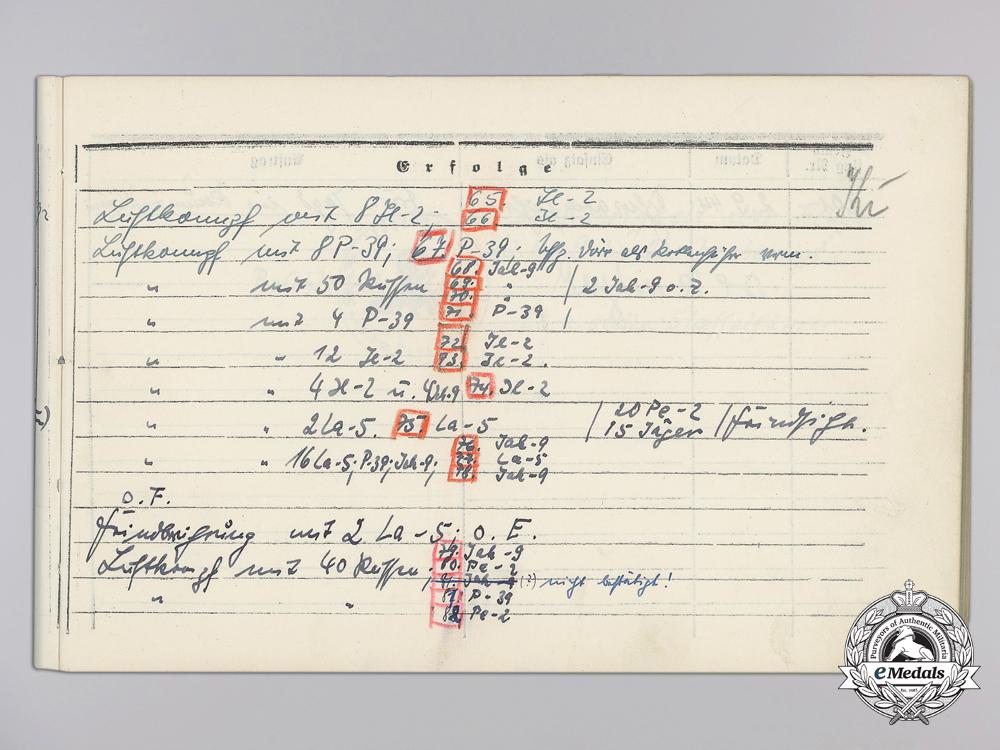 Erfolge
Luftkampf mit 8 Jl-2; 65. Jl-2
66 Jl-2
Luftkampf mit 8 P-39; 67. P-39; Uffz. Dörr als Rottenflieger verw.
68. Jak-9
" mit 50 Russen 69. "
70. 2 Jak-9 o. Z.
" mit 4 P-39 71. P-39
72. Jl-2
" " 12 Jl-2 73. Jl-2.
" " 4 Jl-2 u. 4 Jak-9 74. Jl-2
" " 2 La-5. 75. La-5 20 Pe-2
15 Jäger Feindsicht.
76. Jak-9
" " 16 La-5; P-39; Jak-9; 77. La-5
78. Jak-9
o. F.
Feindberührung mit 2 La-5; o. E.
79. Jak-9
Luftkampf mit 40 Russen. 80. Pe-2
81. Jak-9 (?) nicht bestätigt!
" " 81. P-39
82 Pe-2
Purveyors of Authentic Militaria
eMedals